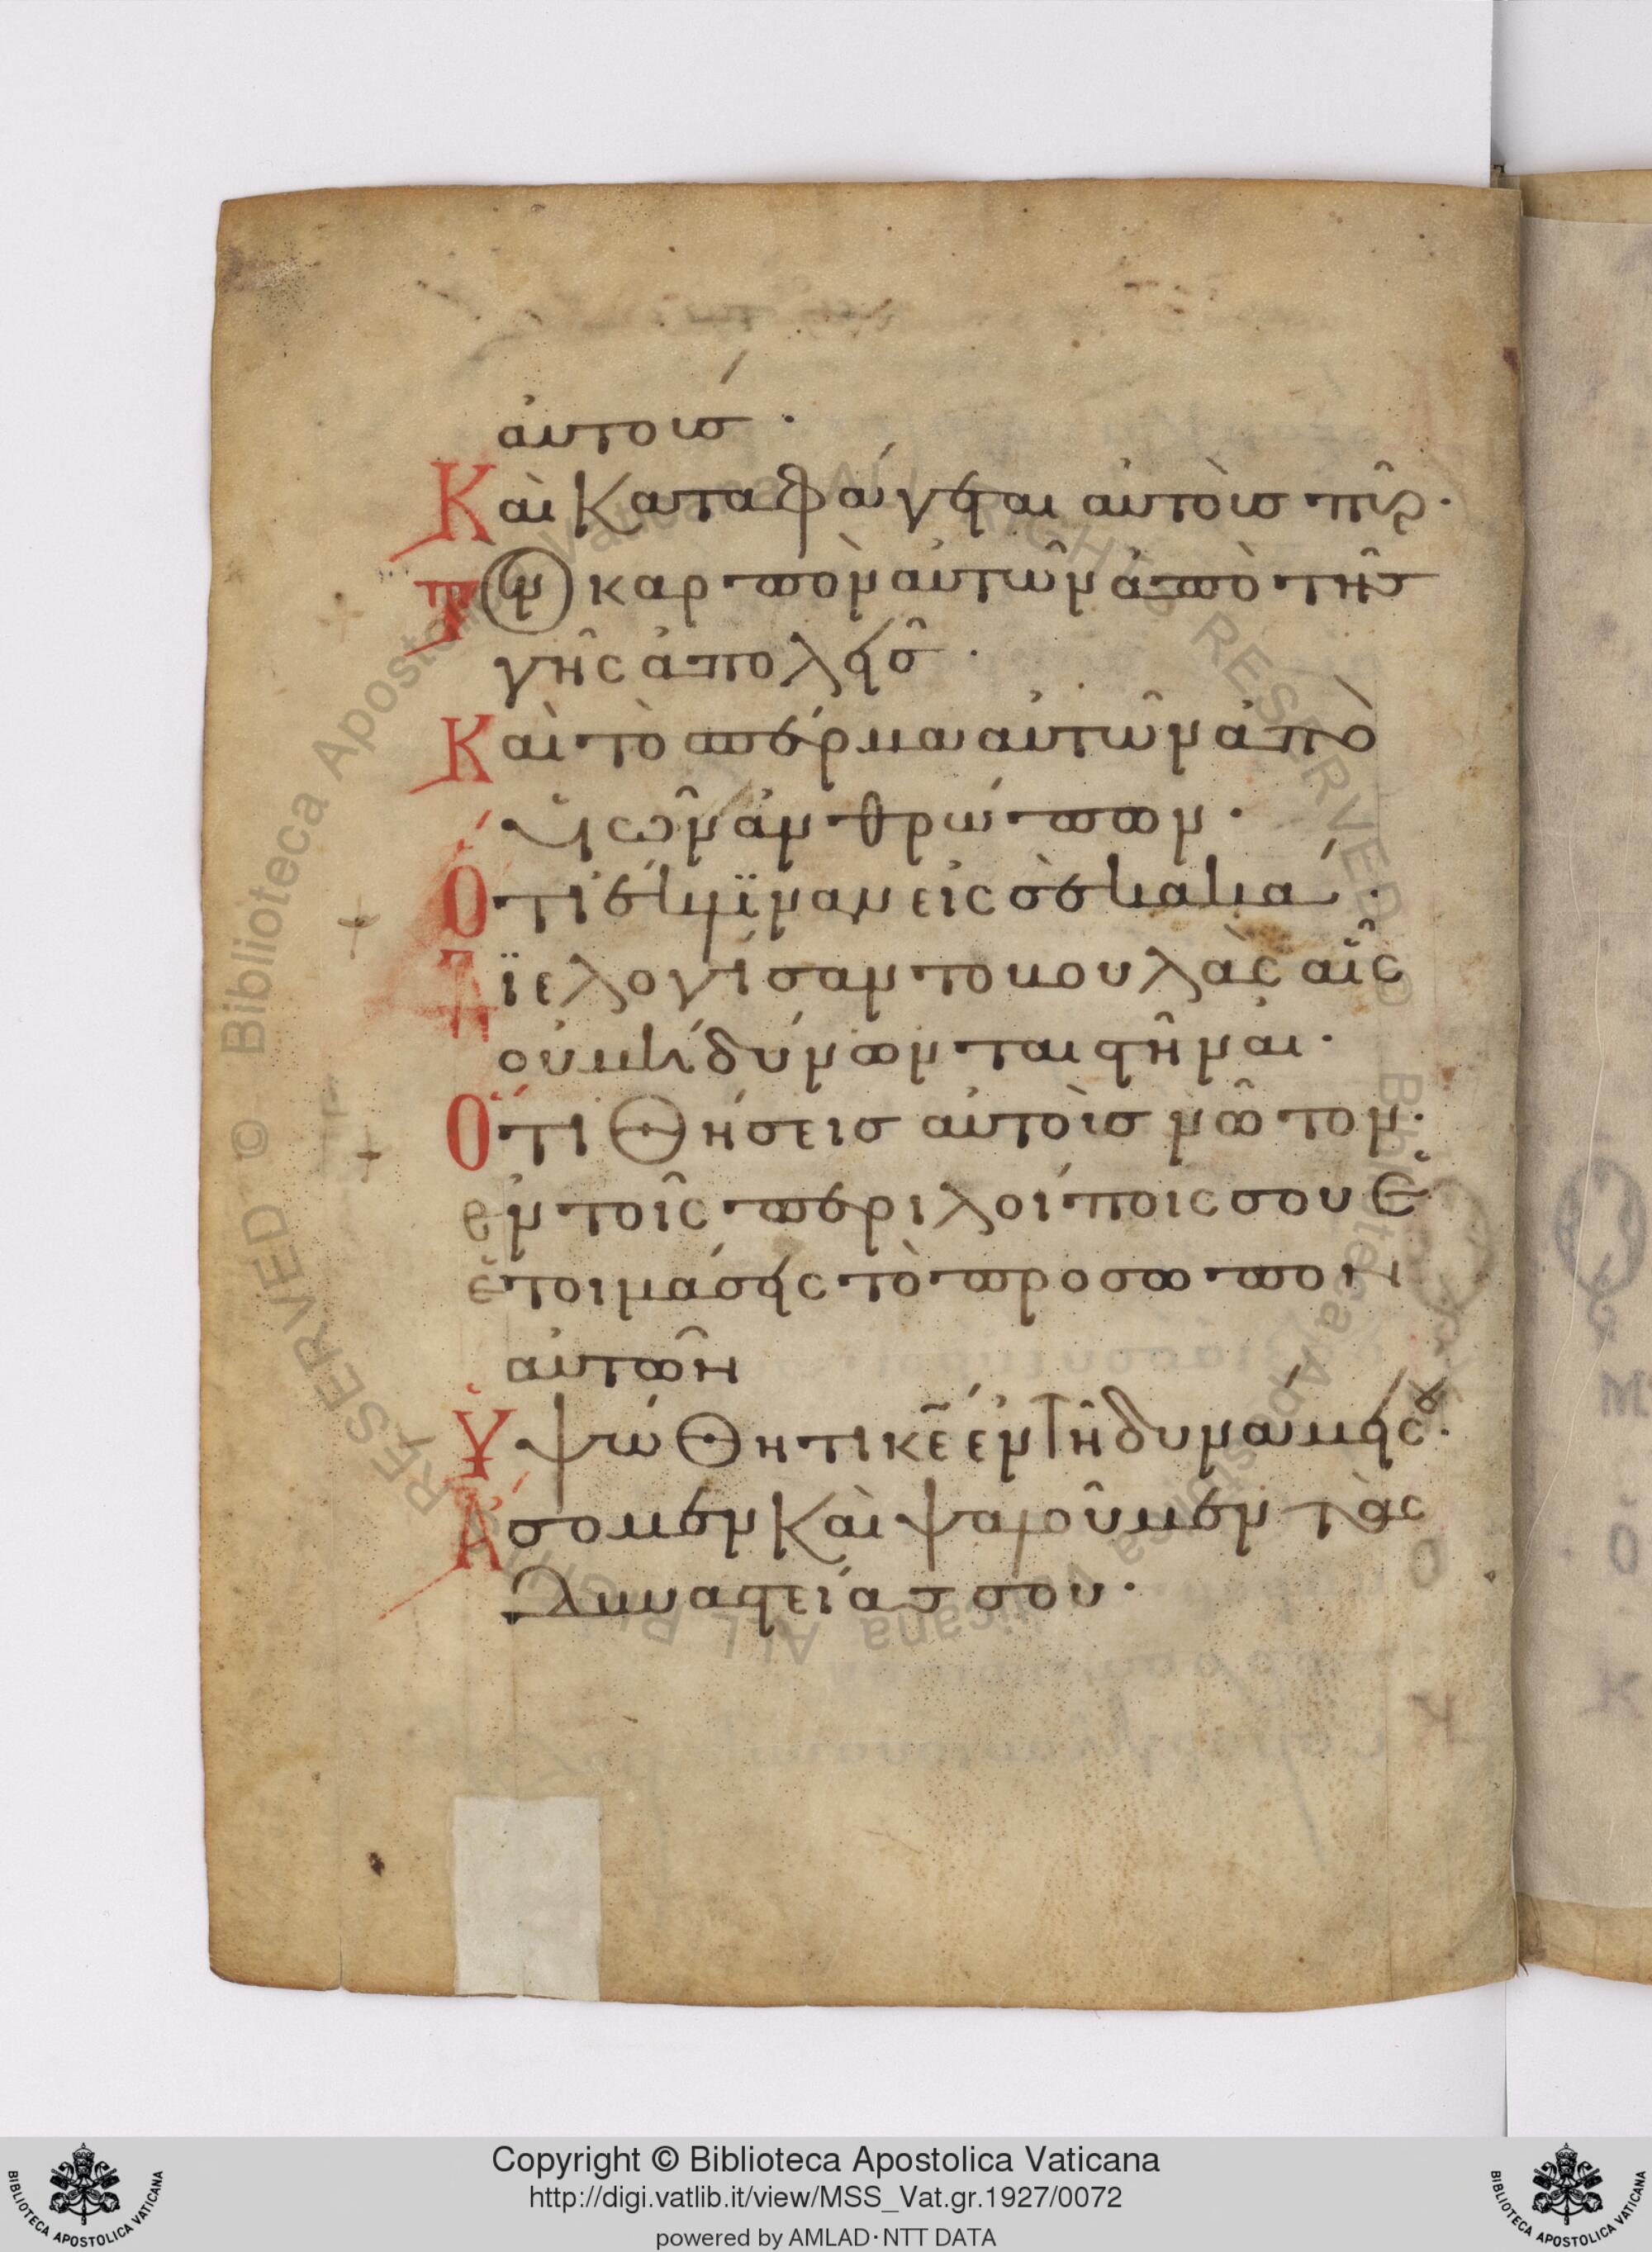 ἀυτοισ ·
Καὶ καταφάγεται αυτὸισ πῦρ·
Τὸν καρπὸν ἀυτῶν ἀπὸ τῆς
γῆς ἀπολεῖσ ·
Καὶ τὸ σπέρμα ἀυτῶν ἀπὸ
υἱῶν ἀνθρώπων ·
Ὅτι ἔκλιναν εἰς σὲ κακά ·
οὐ μὴ δύνωνται στῆναι ·
Ὅτι Θήσεις αὐτοὺσ νῶτον·
εν τοῖς περιλοίποις σου
ἑτοιμάσεις τὸ προσωπον
ἀυτῶν
Ὑψώθητι κε̄ ἐν τῆ δυνάμει σου·
Ἄσομεν καὶ ψαλοῦμεν τὰς
δυναστείας σου ·
RESERVED © Biblioteca Apostolica Vaticana ALL RIGHTS RESERVED © Biblioteca Apostolica Vaticana ALL RIGHTS
Copyright © Biblioteca Apostolica Vaticana
http://digi.vatlib.it/view/MSS_Vat.gr.1927/0072
powered by AMLAD·NTT DATA
BIBLIOTECA APOSTOLICA VATICANA
BIBLIOTECA APOSTOLICA VATICANA